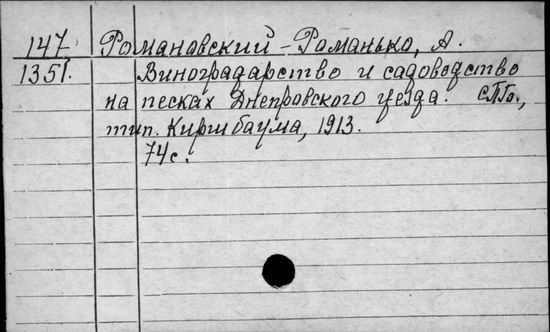 147 Романовский-Романько, А.
1351. Виноградарство и садоводство
на песках Днепровского уезда. СПб.,
тип. Киршбаума, 1913.
74с.